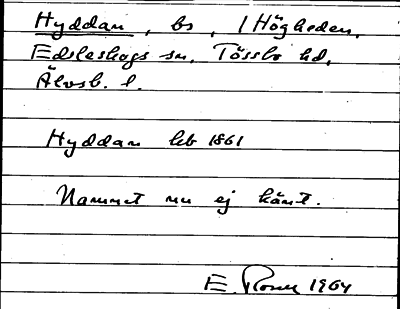 Hyddan, bs, / Högheden,
Edsleskogs sn, Tössbo hd,
Älvsb. l.
Hyddan hb 1861
Namnet nu ej känt.
E. 1964